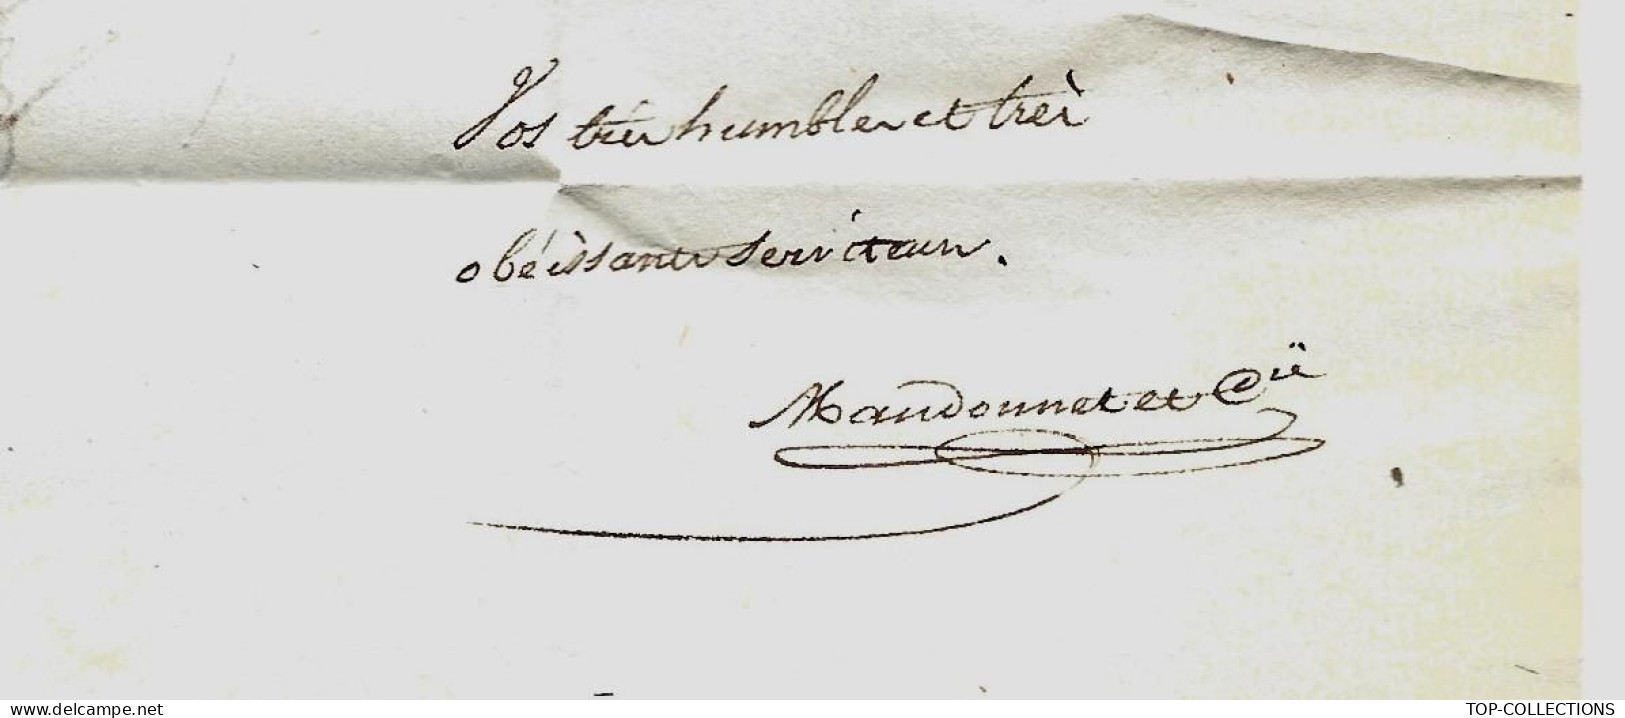 Vos très humbles et très
obéissants serviteurs.
Mandonnet et Cie
www.delcampe.net
TOP-COLLECTIONS